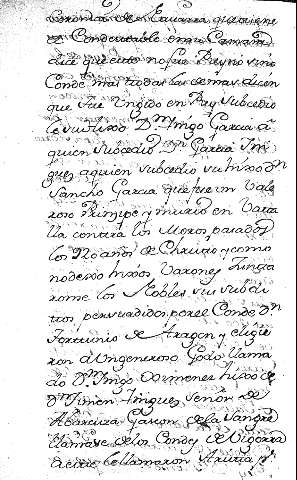 Coronica de Navarra que tiene
el Condestable en su Camara
dice que este no fue Rey no sino
Conde, mas todas las demas dicen
que fue Ungido en Rey Subcedio
le su hixo Dn Iñigo Garcia a
quien Subcedio Dn Garcia Iñi
gues, a quien subcedio su hixo Dn
Sancho Garcia que fue un Vale
roso Principe y murio en Vata
lla contra los Moros, pasados
los años de Christo, y como
no dexo hixos Varones
ronse los Nobles sus subdi
tos persuadidos por el Conde Dn
Fortunio de Aragon, y eligie
ron a Ungeneroso Godo llama
do Dn Iñigo Ximenes hixo de
Dn Ximen Iñigues, Señor de
Abarzuza Garcon de la Sangre
llamase de los Condes de Vigorra
a este le llamaron Arista